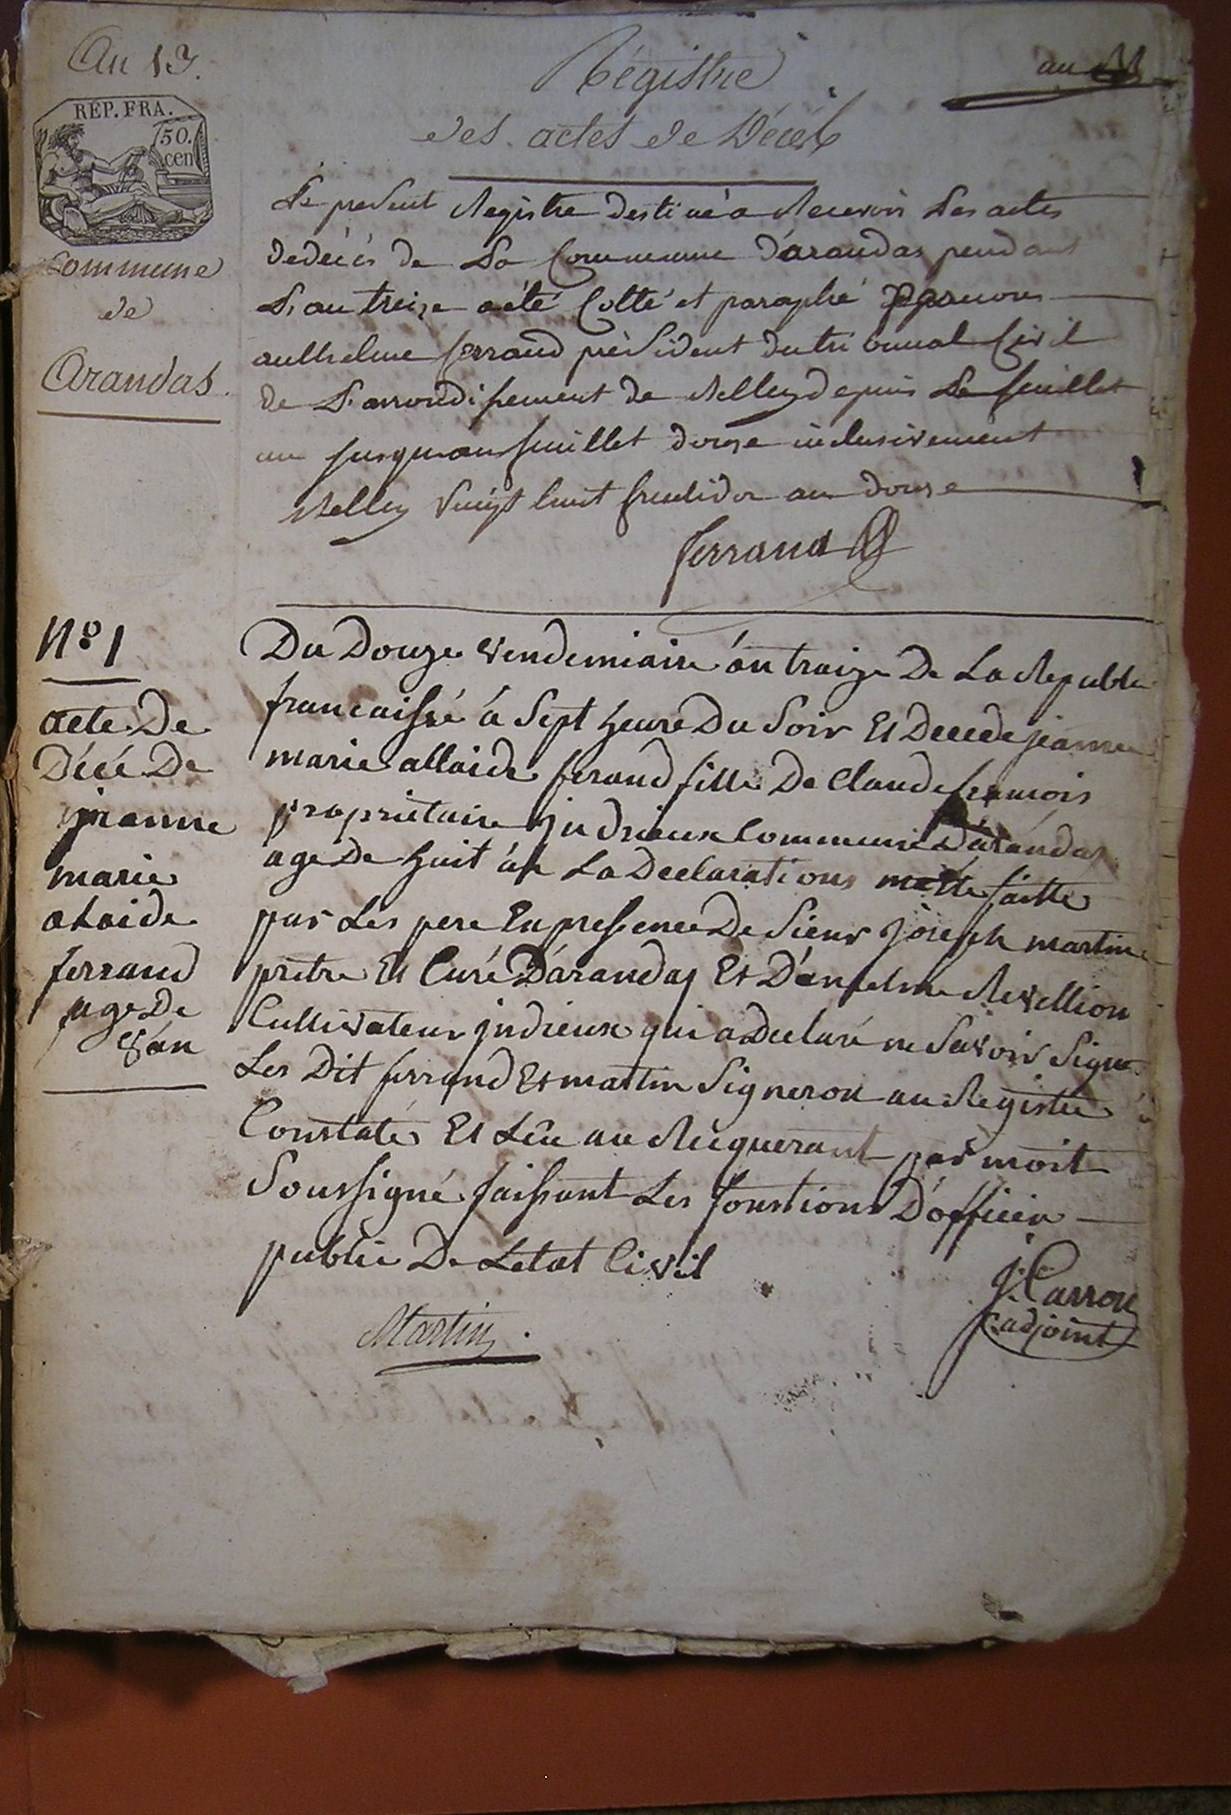 An 13.
REP. FRA.
50.
cen
Commune
de
Arandas.
Régistre
des actes de Décés
au
Le present Registre destiné a Recevoir Les actes
de décés de La Commune d'arandas pendant
L'an treize a été Cotté et paraphé par nous
anthelme ferrand président du tribunal Civil
de L'arrondissement de Belley depuis Le feuillet
un jusqu'au feuillet douze inclusivement
Belley vingt huit fructidor an douze
ferrand
N° 1
acte De
Décé De
jeanne
marie
alaide
ferrand
age De
8 án
Du Douze vendemiaire án traize De La Republi
francaisse á Sept heure Du Soir Et Decede jeanne
marie allaide ferand fille De Claude francois
propriétaire indrieux Commune D'arandas
age De huit án La Declarations matte faitte
par Les pere En pressence De Sieur joseph martin
pretre Et Curé D'arandas Et D'enselme Revellion
Cultivateur indrieux qui a Declaré ne Savoir Signe
Les Dit ferrand Et martin Signeron au Registre
Constaté Et Lëu au Requerant par moit
Soussigné faissant Les fonstions D'officier
public De Letat Civil
Martin
J. Carron
adjoint